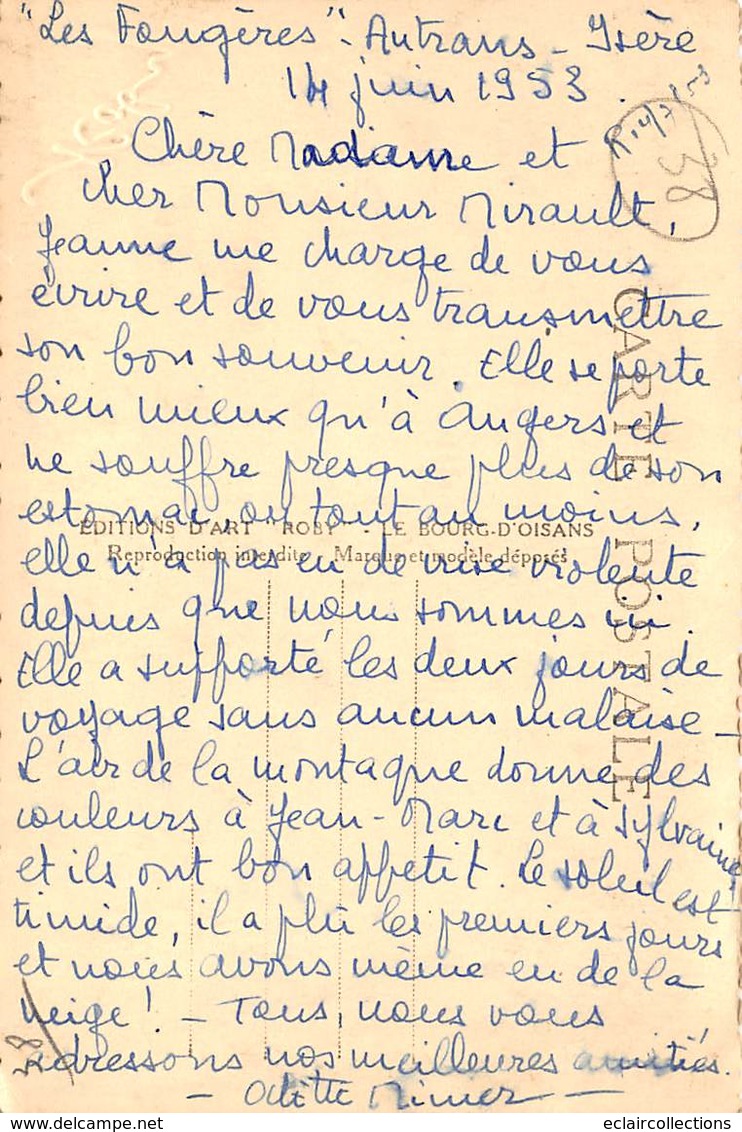 "Les Fougères" - Autrans - Isère
14 juin 1953.
38
Chère Madame et
cher Monsieur Mirault,
Jeanne me charge de vous
écrire et de vous transmettre
son bon souvenir. Elle se porte
bien mieux qu'à Angers et
ne souffre presque plus de son
estomac, ou tout au moins,
elle n'a pas eu de crise violente
depuis que nous sommes ici.
Elle a supporté les deux jours de
voyage sans aucun malaise -
L'air de la montagne donne des
couleurs à Jean-Marc et à Sylvaine
et ils ont bon appétit. Le soleil est
timide, il a plu les premiers jours
et nous avons même eu de la
neige! - Tous, nous vous
adressons nos meilleures amitiés.
- Odette
CARTE POSTALE
EDITIONS D'ART "ROBY" - LE BOURG-D'OISANS
Reproduction interdite - Marque et modèle déposés
eclaircollections